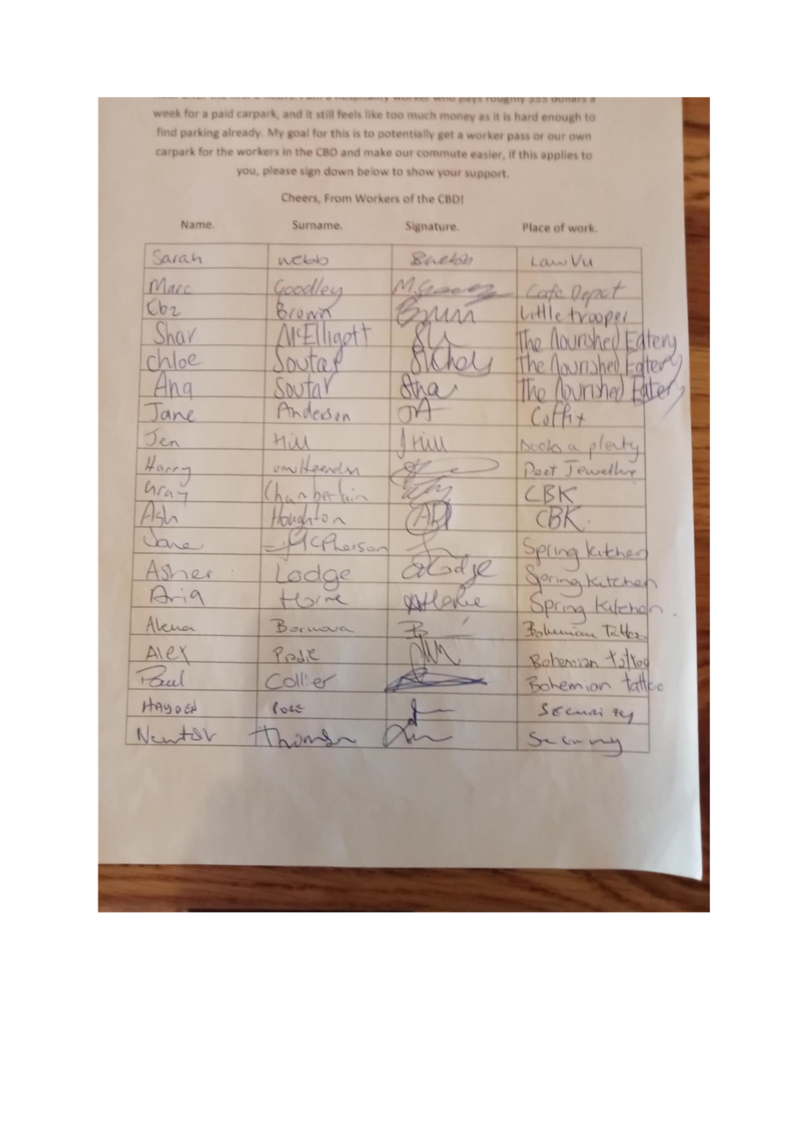 week for a paid carpark, and it still feels like too much money as it is hard enough to
find parking already. My goal for this is to potentially get a worker pass or our own
carpark for the workers in the CBD and make our commute easier, if this applies to
you, please sign down below to show your support.
Cheers, From Workers of the CBD!
Name. Surname. Signature. Place of work.
Sarah Webb SWebb Law Vu
Marc Goodley Cafe Depot
Brown Little trooper
Shar McElligott The Nourished Eatery
Chloe Soutar The Nourished Eatery
Ana Soutar Ana The Nourished Eatery
Jane Anderson JA Coffix
Jen Hill J Hill Books a plenty
Harry
Gray Chamberlain CBK
Ash Houghton AH CBK.
Jane McPherson Spring Kitchen
Asher Lodge ALodge Spring Kitchen
Aria Horne AHorne Spring Kitchen.
Alena Bohemian Tattoo
Alex Bohemian tattoo
Paul Collier Bohemian tattoo
HAYDEN SECURITY
Security